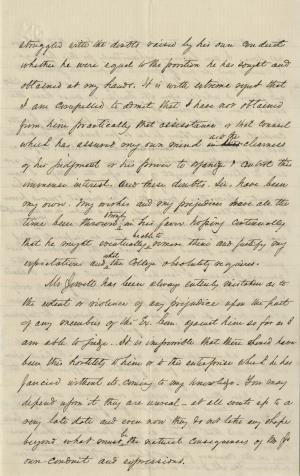 struggled with the doubts raised by his own conduct
whether he were equal to the position he has sought and
obtained at my hands. It is with extreme regret that
I am compelled to admit that I have not obtained
from him practically that assistance & that counsel
which has assured my own mind and the clearness
of his judgment or his power to organize & control this
immense interest. And these doubts, Sir, have been
my own. My wishes and my prejudices have all the
time been thrown strongly in his favor hoping continually
that he might eventually be able to remove them and justify my
expectation and what the College absolutely requires.
Mr Jewett has been always entirely mistaken as to
the extent or violence of any prejudice upon the part
of any members of the Ex. Com. against him so far as I
am able to judge. It is impossible that there should have
been this hostility to him or to this enterprise which he has
fancied without its coming to my knowledge. You may
depend upon it they are unreal - at all events up to a
very late date and even now they do not take any shape
beyond what must be the natural consequences of Mr J's
own conduct and expressions.